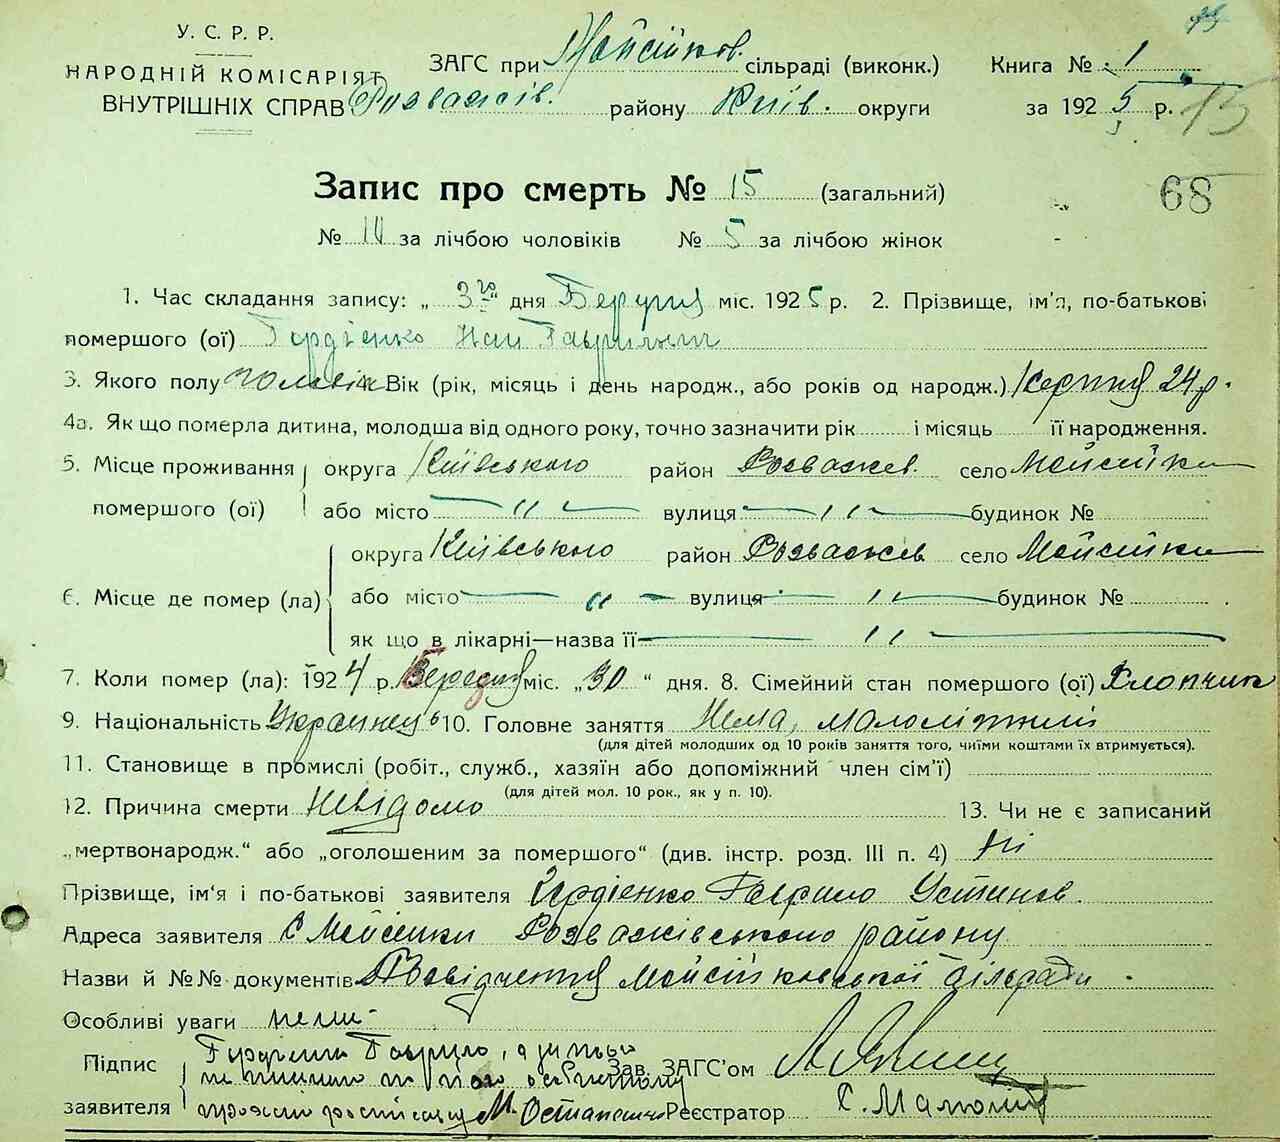 У. С. Р. Р.
НАРОДНІЙ КОМІСАРІЯТ
ВНУТРІШНІХ СПРАВ
ЗАГС при Мойсійков. сільраді (виконк.) Книга № 1
Розважів. району Київ. округи за 1925 р. 15
Запис про смерть № 15 (загальний) 68
№ 10 за лічбою чоловіків № 5 за лічбою жінок
1. Час складання запису: „ 3го “ дня міс. 1925 р. 2. Прізвище, ім'я, по-батькові
помершого (ої) Гордієнко
3. Якого полу чоловік 4. Вік (рік, місяць і день народж., або років од народж.) 24 р.
4а. Як що померла дитина, молодша від одного року, точно зазначити рік і місяць її народження.
5. Місце проживання помершого (ої) округа Київського район Розважев. село Мойсійки
або місто — „ — вулиця — „ — будинок №
6. Місце де помер (ла) округа Київського район Розважев село Мойсійки
або місто — „ — вулиця — „ — будинок №
як що в лікарні—назва її — „ —
7. Коли помер (ла): 1924 р. міс. „30“ дня. 8. Сімейний стан помершого (ої) Хлопчик
9. Національність Украинець 10. Головне заняття Нема, малолітній
(для дітей молодших од 10 років заняття того, чиїми коштами їх втримується).
11. Становище в промислі (робіт., служб., хазяїн або допоміжний член сім'ї)
(для дітей мол. 10 рок., як у п. 10).
12. Причина смерти Невідомо 13. Чи не є записаний
„мертвонародж.“ або „оголошеним за помершого“ (див. інстр. розд. III п. 4) Ні
Прізвище, ім'я і по-батькові заявителя Гордієнко Гаврило Устинов.
Адреса заявителя с Мойсійки Розважівського району
Назви й №№ документів Посвідчення Мойсійковської сільради.
Особливі уваги нема-
Підпис заявителя Гордієнко Гаврило, а за його
М. Остапенко
Зав. ЗАГС'ом
Реєстратор